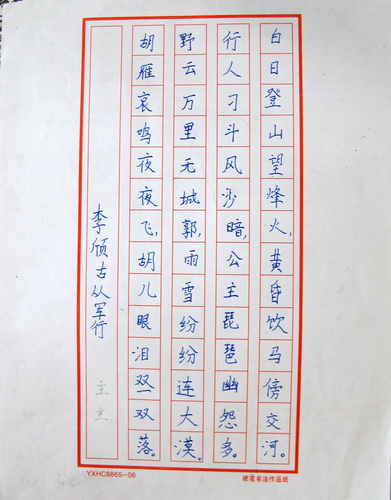 白日登山望烽火,黄昏饮马傍交河。
行人刁斗风沙暗,公主琵琶幽怨多。
野云万里无城郭,雨雪纷纷连大漠。
胡雁哀鸣夜夜飞,胡儿眼泪双双落。
李颀古从军行
YXHC6865-06
硬笔书法作品纸